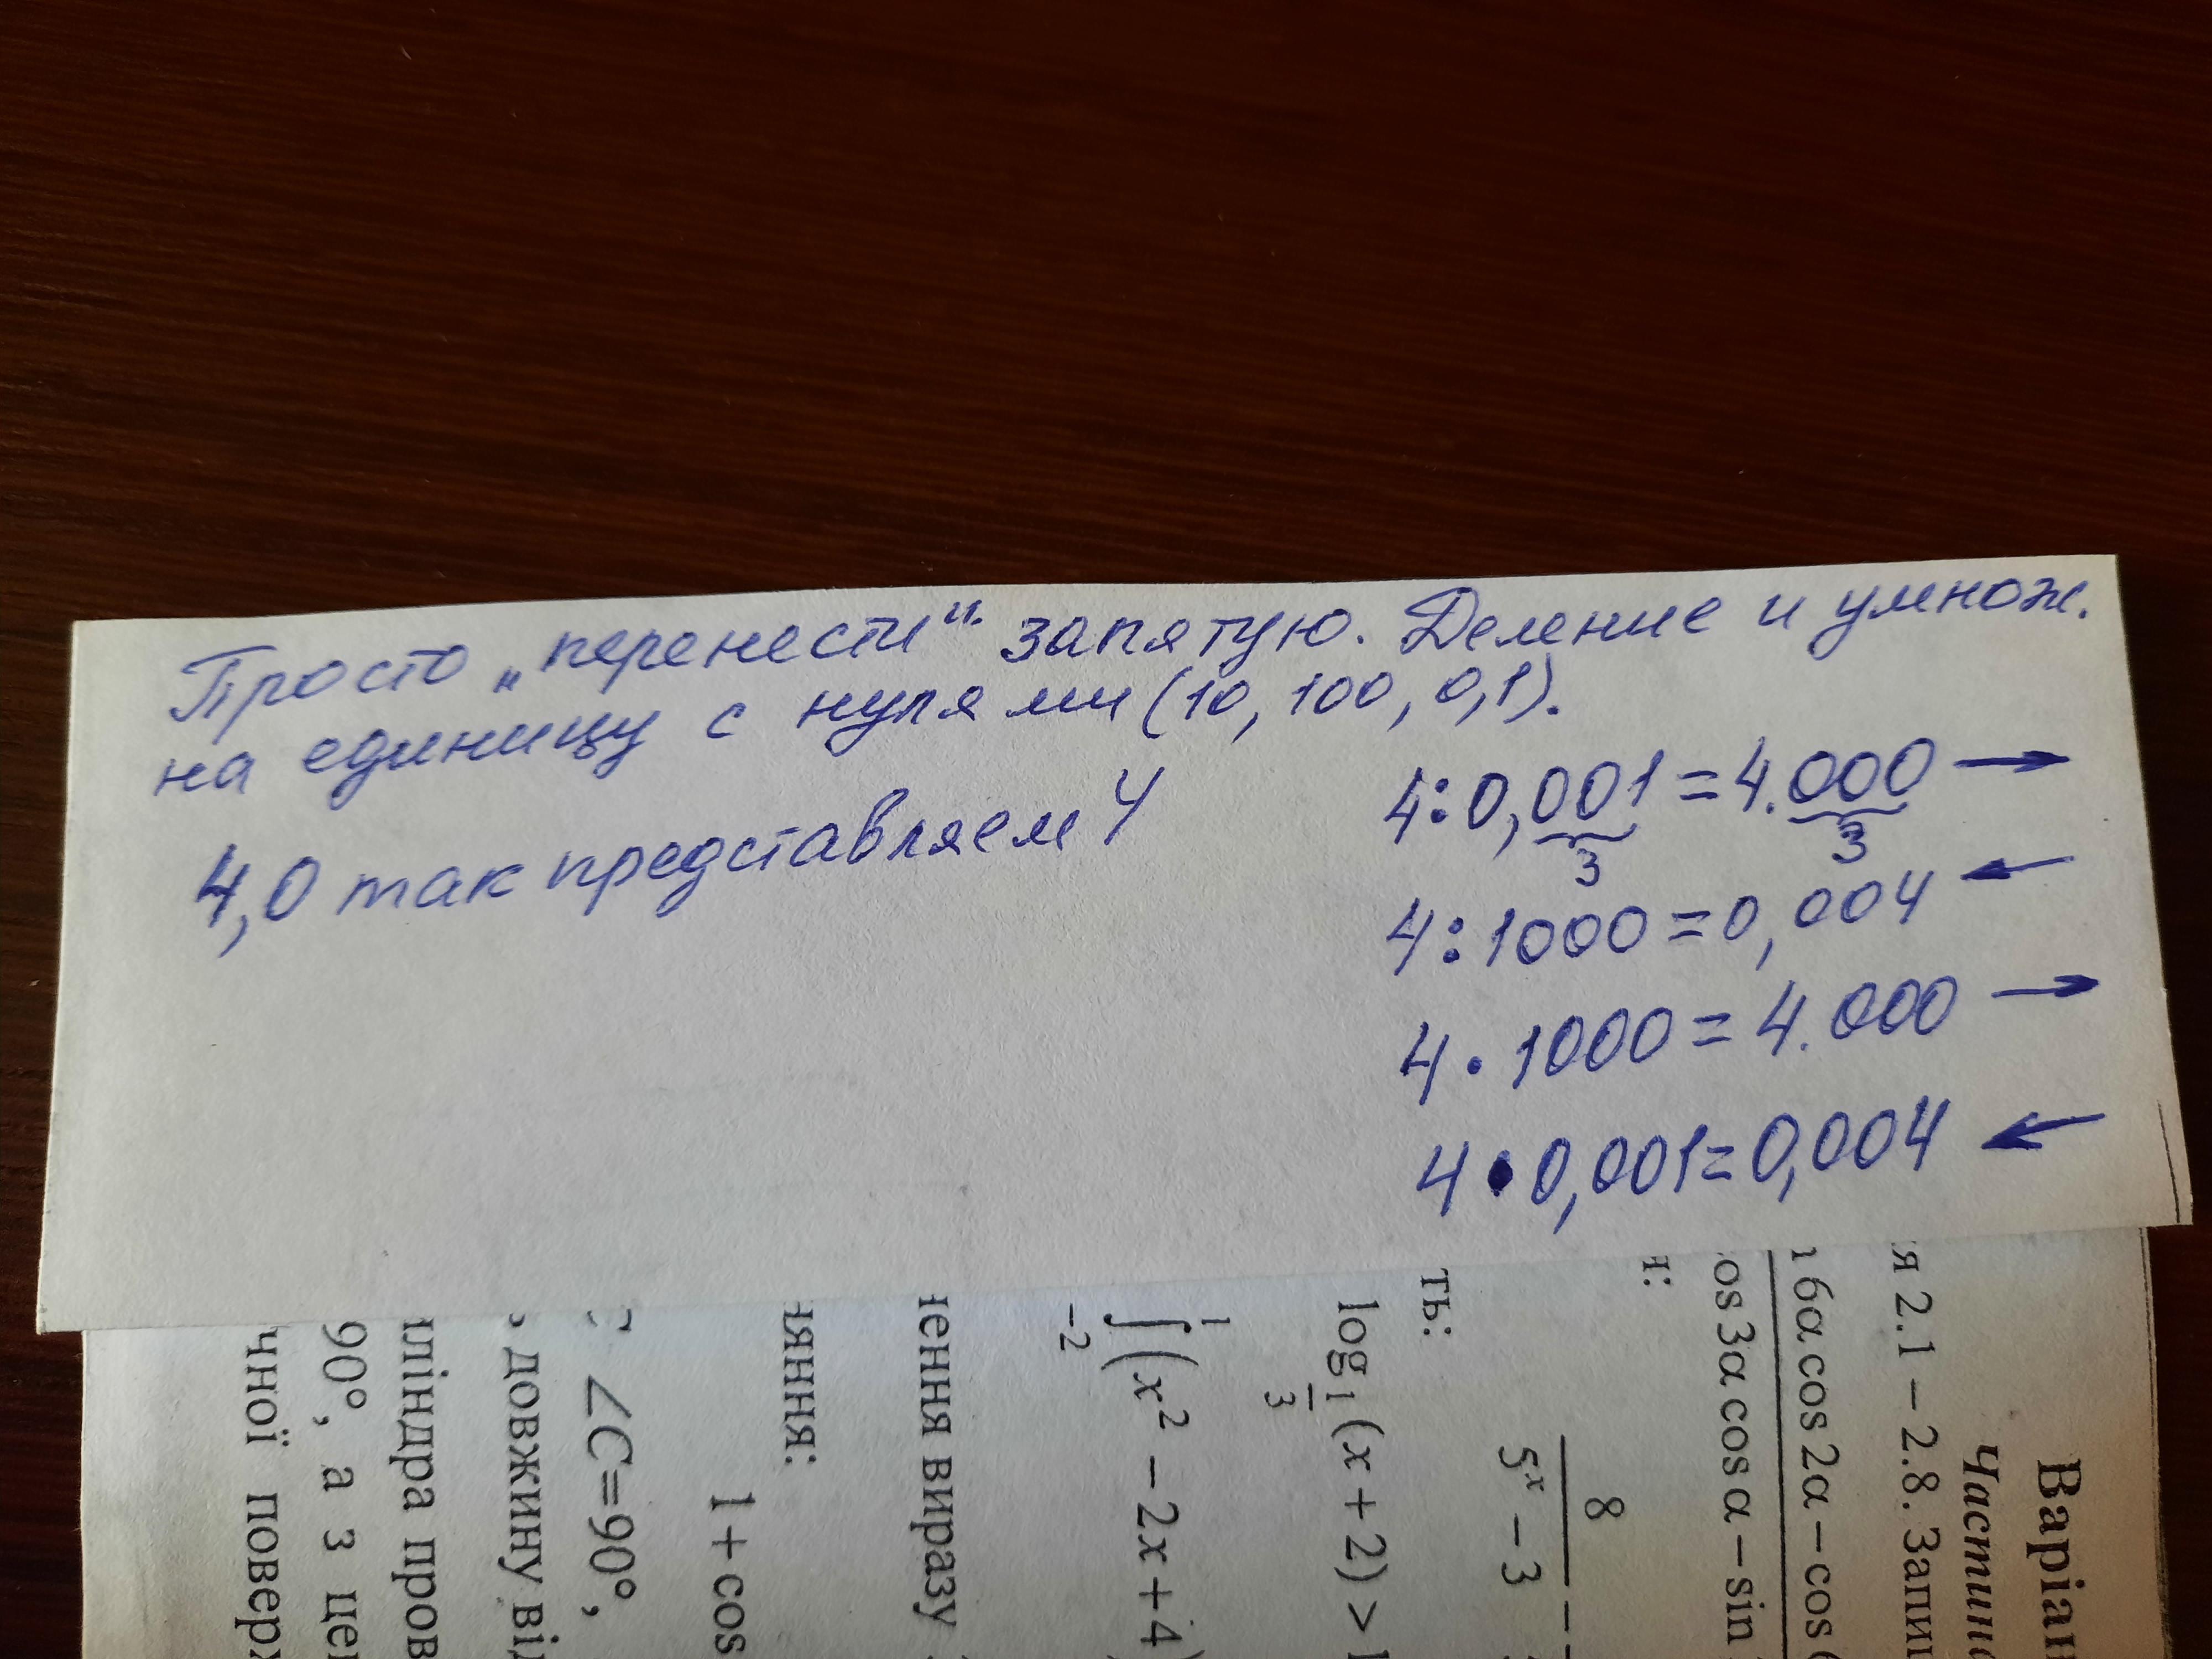 Просто „перенести“ запятую. Деление и умнож.
на единицу с нулями (10, 100, 0,1).
4,0 так представляем 4
4:0,001=4.000 →
3 3
4:1000=0,004 ←
4·1000=4.000 →
4·0,001=0,004 ←
Варіан
Частин
ія 2.1 – 2.8. Запи
6α cos 2α – cos
cos 3α cos α – sin
я:
8
5ˣ – 3
ть:
log 1/3 (x + 2) >
1
∫(x² – 2x + 4)
–2
ення виразу
няння:
1 + cos
∠C=90°,
довжину ві
ліндра пров
90°, а з це
чної поверх